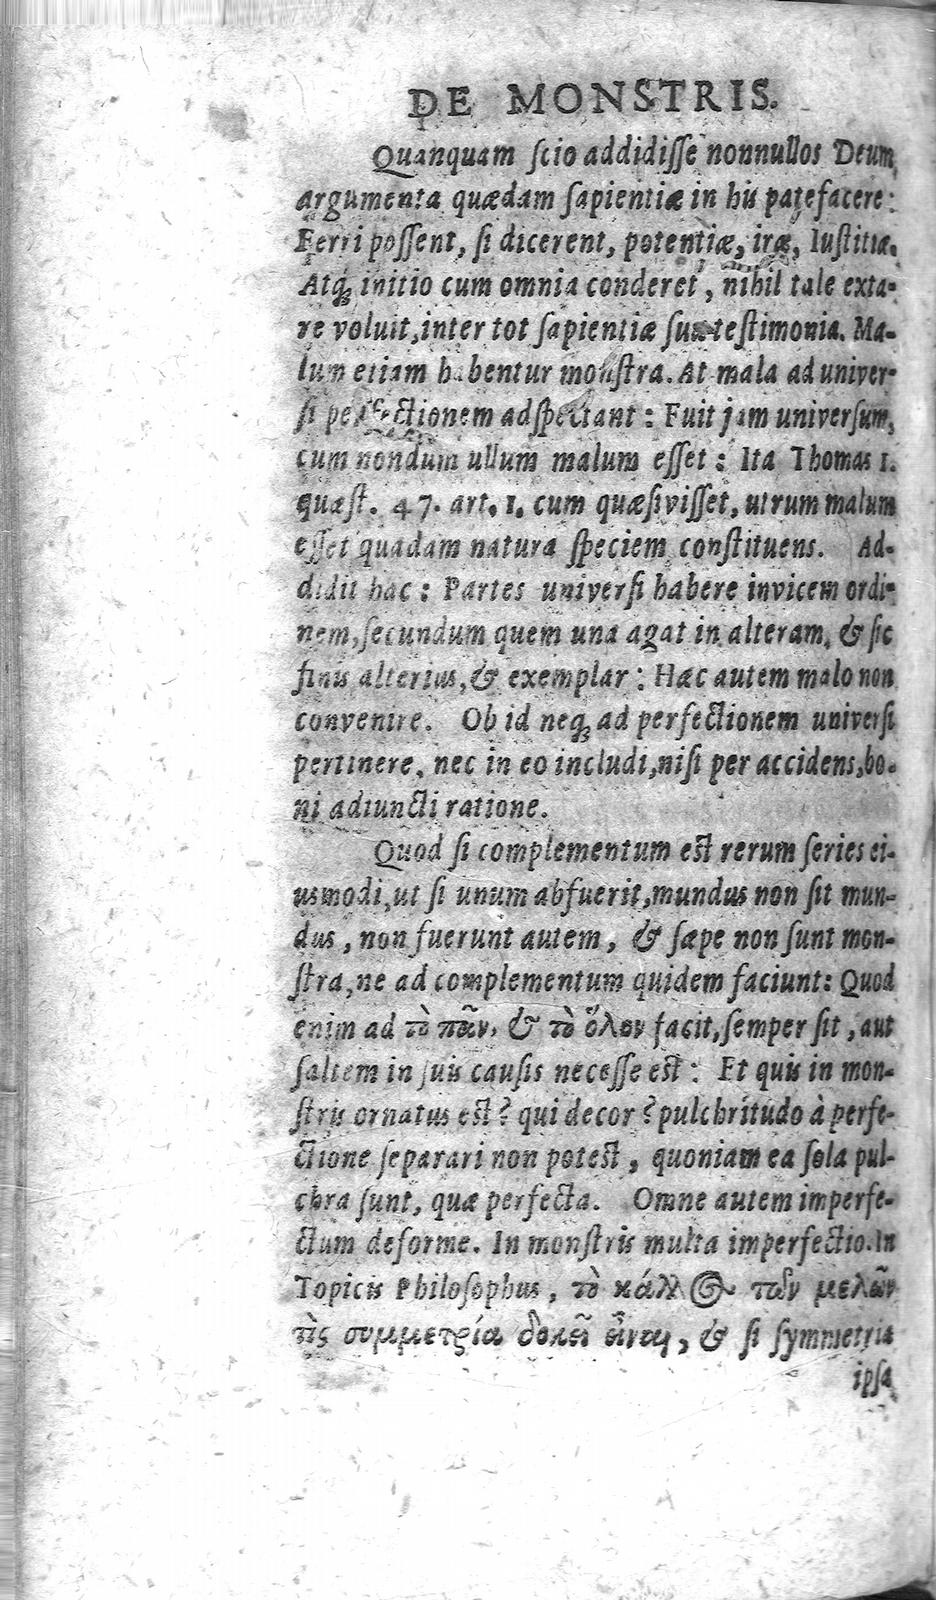 DE MONSTRIS.
Quanquam ſcio addidiſſe nonnullos Deum,
argumenta quædam ſapientiæ in his patefacere:
Ferri poſſent, ſi dicerent, potentiæ, iræ, Iuſtitiæ.
Atq́; initio cum omnia conderet, nihil tale exta-
re voluit, inter tot ſapientiæ ſuæ teſtimonia. Ma-
lum etiam habentur monſtra. At mala ad univer-
ſi perfectionem adſpectant: Fuit jam univerſum,
cum nondum ullum malum eſſet: Ita Thomas 1.
quæſt. 47. art. 1. cum quæſiviſſet, utrum malum
eſſet quadam natura ſpeciem conſtituens. Ad-
didit hac: Partes univerſi habere invicem ordi-
nem, ſecundum quem una agat in alteram, & ſic
finis alterius, & exemplar: Hæc autem malo non
convenire. Ob id neq́; ad perfectionem univerſi
pertinere, nec in eo includi, niſi per accidens, bo-
ni adiuncti ratione.
Quod ſi complementum eſt rerum ſeries ei-
usmodi, ut ſi unum abfuerit, mundus non ſit mun-
dus, non fuerunt autem, & ſæpe non ſunt mon-
ſtra, ne ad complementum quidem faciunt: Quod
enim ad τὸ πᾶν, & τὸ ὅλον facit, ſemper ſit, aut
ſaltem in ſuis cauſis neceſſe eſt: Et quis in mon-
ſtris ornatus eſt? qui decor? pulchritudo à perfe-
ctione ſeparari non poteſt, quoniam ea ſola pul-
chra ſunt, quæ perfecta. Omne autem imperfe-
ctum deforme. In monſtris multa imperfectio. In
Topicis Philoſophus, τὸ κάλλος τῶν μελῶν
τὶς συμμετρία δοκεῖ εἶναι, & ſi ſymmetria
ipſa